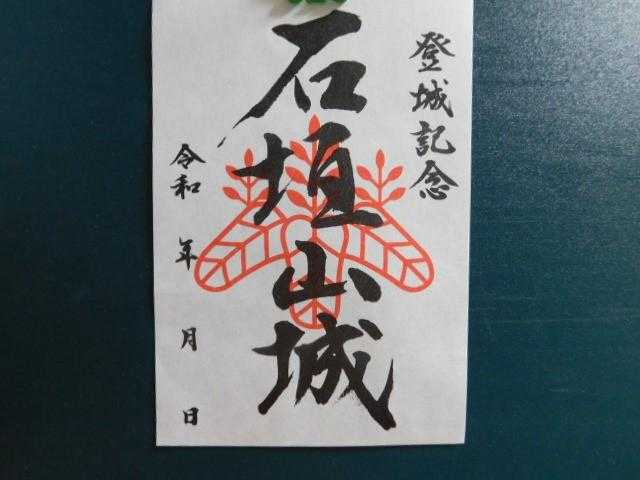 登城記念
石垣山城
令和 年 月 日